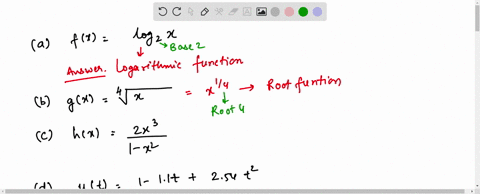 (a) f(x) = log₂ x
Base 2
Answer. Logarithmic function
(b) g(x) = ⁴√x = x^{1/4} → Root funtion
Root 4
(c) h(x) = 2x³ / 1-x²
(d) u(t) = 1 - 1.1t + 2.54 t²